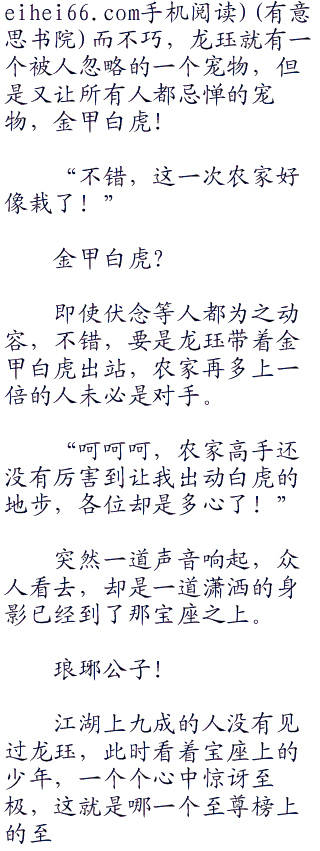 eihei66.com手机阅读)(有意
思书院)而不巧，龙珏就有一
个被人忽略的一个宠物，但
是又让所有人都忌惮的宠
物，金甲白虎！
“不错，这一次农家好
像栽了！”
金甲白虎？
即使伏念等人都为之动
容，不错，要是龙珏带着金
甲白虎出站，农家再多上一
倍的人未必是对手。
“呵呵呵，农家高手还
没有厉害到让我出动白虎的
地步，各位却是多心了！”
突然一道声音响起，众
人看去，却是一道潇洒的身
影已经到了那宝座之上。
琅琊公子！
江湖上九成的人没有见
过龙珏，此时看着宝座上的
少年，一个个心中惊讶至
极，这就是哪一个至尊榜上
的至